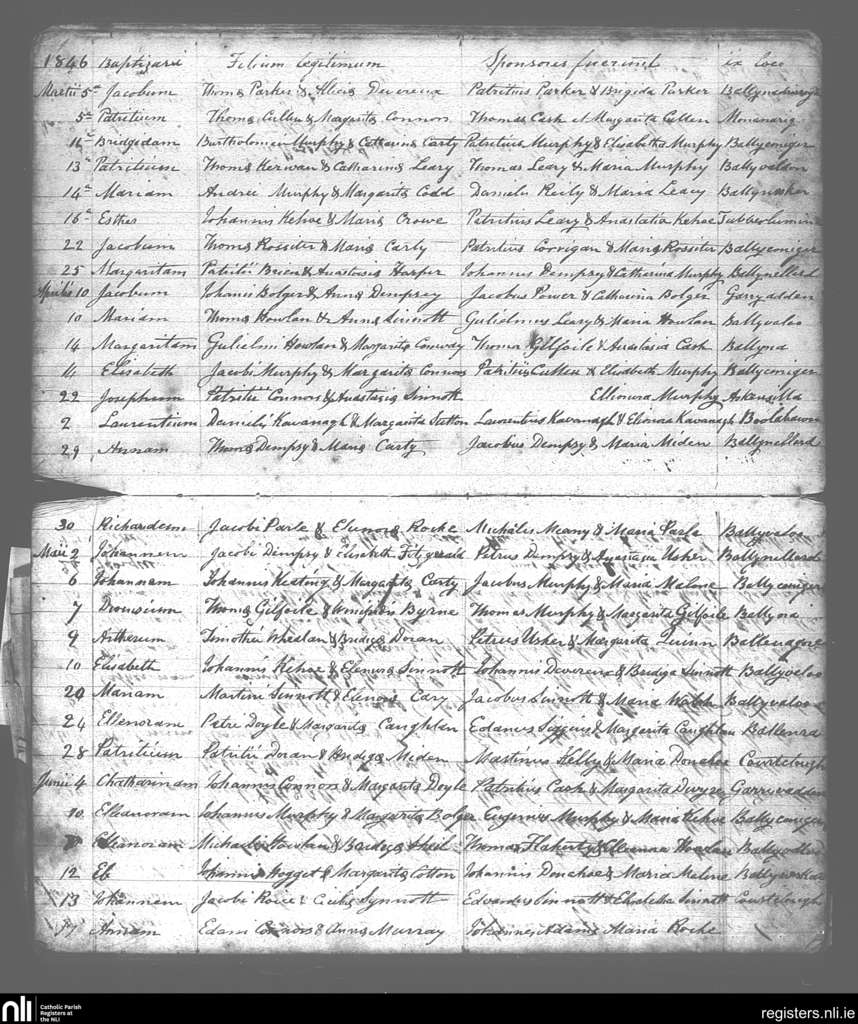 1846 Baptizavi Filium legitimum Sponsores fuerunt ex loco
Martii 5a Jacobum Thoma Parker & Alicia Devereux Patritius Parker & Brigida Parker
5a Patritium Thoma Cullen & Margarita Connon Thomas Cash et Margarita Cullen Monanarig
Bridgidam Bartholomeu Murphy & Catharina Carty Patritius Murphy & Elisabetha Murphy Ballyconiger
13a Patritium Thoma Kerwan & Catharina Leary Thomas Leary & Maria Murphy Ballyvaldon
14a Mariam Andrei Murphy & Margarita Codd Daniel Reily & Maria Leary
16a Esther Johannis Kehoe & Maria Crowe Patritius Leary & Anastatia Kehoe
22 Jacobum Thoma Rossiter & Maria Carty Patritius Corrigan & Maria Rossiter Ballyconiger
25 Margaritam Patritii Brien & Anastasia Harper Johannis Dempsy & Catharina Murphy Ballynellard
Aprilis 10 Jacobum Johannis Bolger & Anna Dempsey Jacobus Power & Catharina Bolger Garryadden
10 Mariam Thoma Howlan & Anna Sinnott Gulielmus Leary & Maria Howlan Ballyvaloo
14 Margaritam Gulielmi Howlan & Margarita Conway Thoma Gilfoile & Anastasia Cash Ballyna
Elisabeth Jacobi Murphy & Margarita Connors Patritius Cullen & Elisabeth Murphy Ballyconiger
22 Josephum Patritii Connors & Anastasia Sinnott Ellionora Murphy
2 Laurentium Danieli Kavanagh & Margarita Sutton Laurentius Kavanagh & Elionora Kavanagh Boolabawn
29 Annam Thoma Dempsy & Maria Carty Jacobus Dempsy & Maria Meden Ballynellard
30 Richardum Jacobi Parle & Elenora Roche Michalis Meany & Maria Parle Ballyvaloo
Maii 2 Johannem Jacobi Dempsy & Elisabeth Fitzgerald Petrus Dempsy & Anastatia Usher Ballynellard
6 Johannam Johannis Keating & Margarita Carty Jacobus Murphy & Maria Malone Ballyconiger
7 Thoma Gilfoile & Byrne Thomas Murphy & Margarita Gilfoile Ballyna
9 Artherum Timothii Whealan & Bridga Doran Petrus Usher & Margarita Quinn
10 Elisabeth Johannis Kehoe & Elenora Sinnott Johannis Devereux & Bridga Sinnott Ballyvaloo
20 Mariam Martini Sinnott & Elenora Cary Jacobus Sinnott & Maria Walsh Ballyvaloo
24 Ellenoram Petri Doyle & Margarita Caughlan Edanus & Margarita Caughlan Ballenra
28 Patritium Patritii Doran & Bridga Meden Martinus Kelly & Maria Donahoe Courtclough
Junii 4 Chatharinam Johannis Connon & Margarita Doyle Patritius Cash & Margarita Dwyer Garrivadden
10 Elleanoram Johannis Murphy & Margarita Bolger Eugenus Murphy & Maria Kehoe Ballyconiger
Elleanoram Michaelis Howlan & Bridga Sheil Thomas Flaherty & Elleanora Howlan
12 Eli Johannis Hogget & Margarita Cotton Johannis Donahoe & Maria Malone
13 Johannem Jacobi Roice & Synnott Edvardus Sinnott & Elisabetha Sinnott Courtclough
17 Annam Edani Connors & Anna Murray Johannes Adams Maria Roche
nli Catholic Parish Registers at the NLI
registers.nli.ie